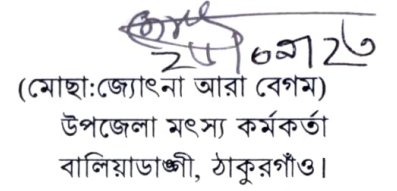 (মোছা:জ্যোৎনা আরা বেগম)
উপজেলা মৎস্য কর্মকর্তা
বালিয়াডাঙ্গী, ঠাকুরগাঁও।